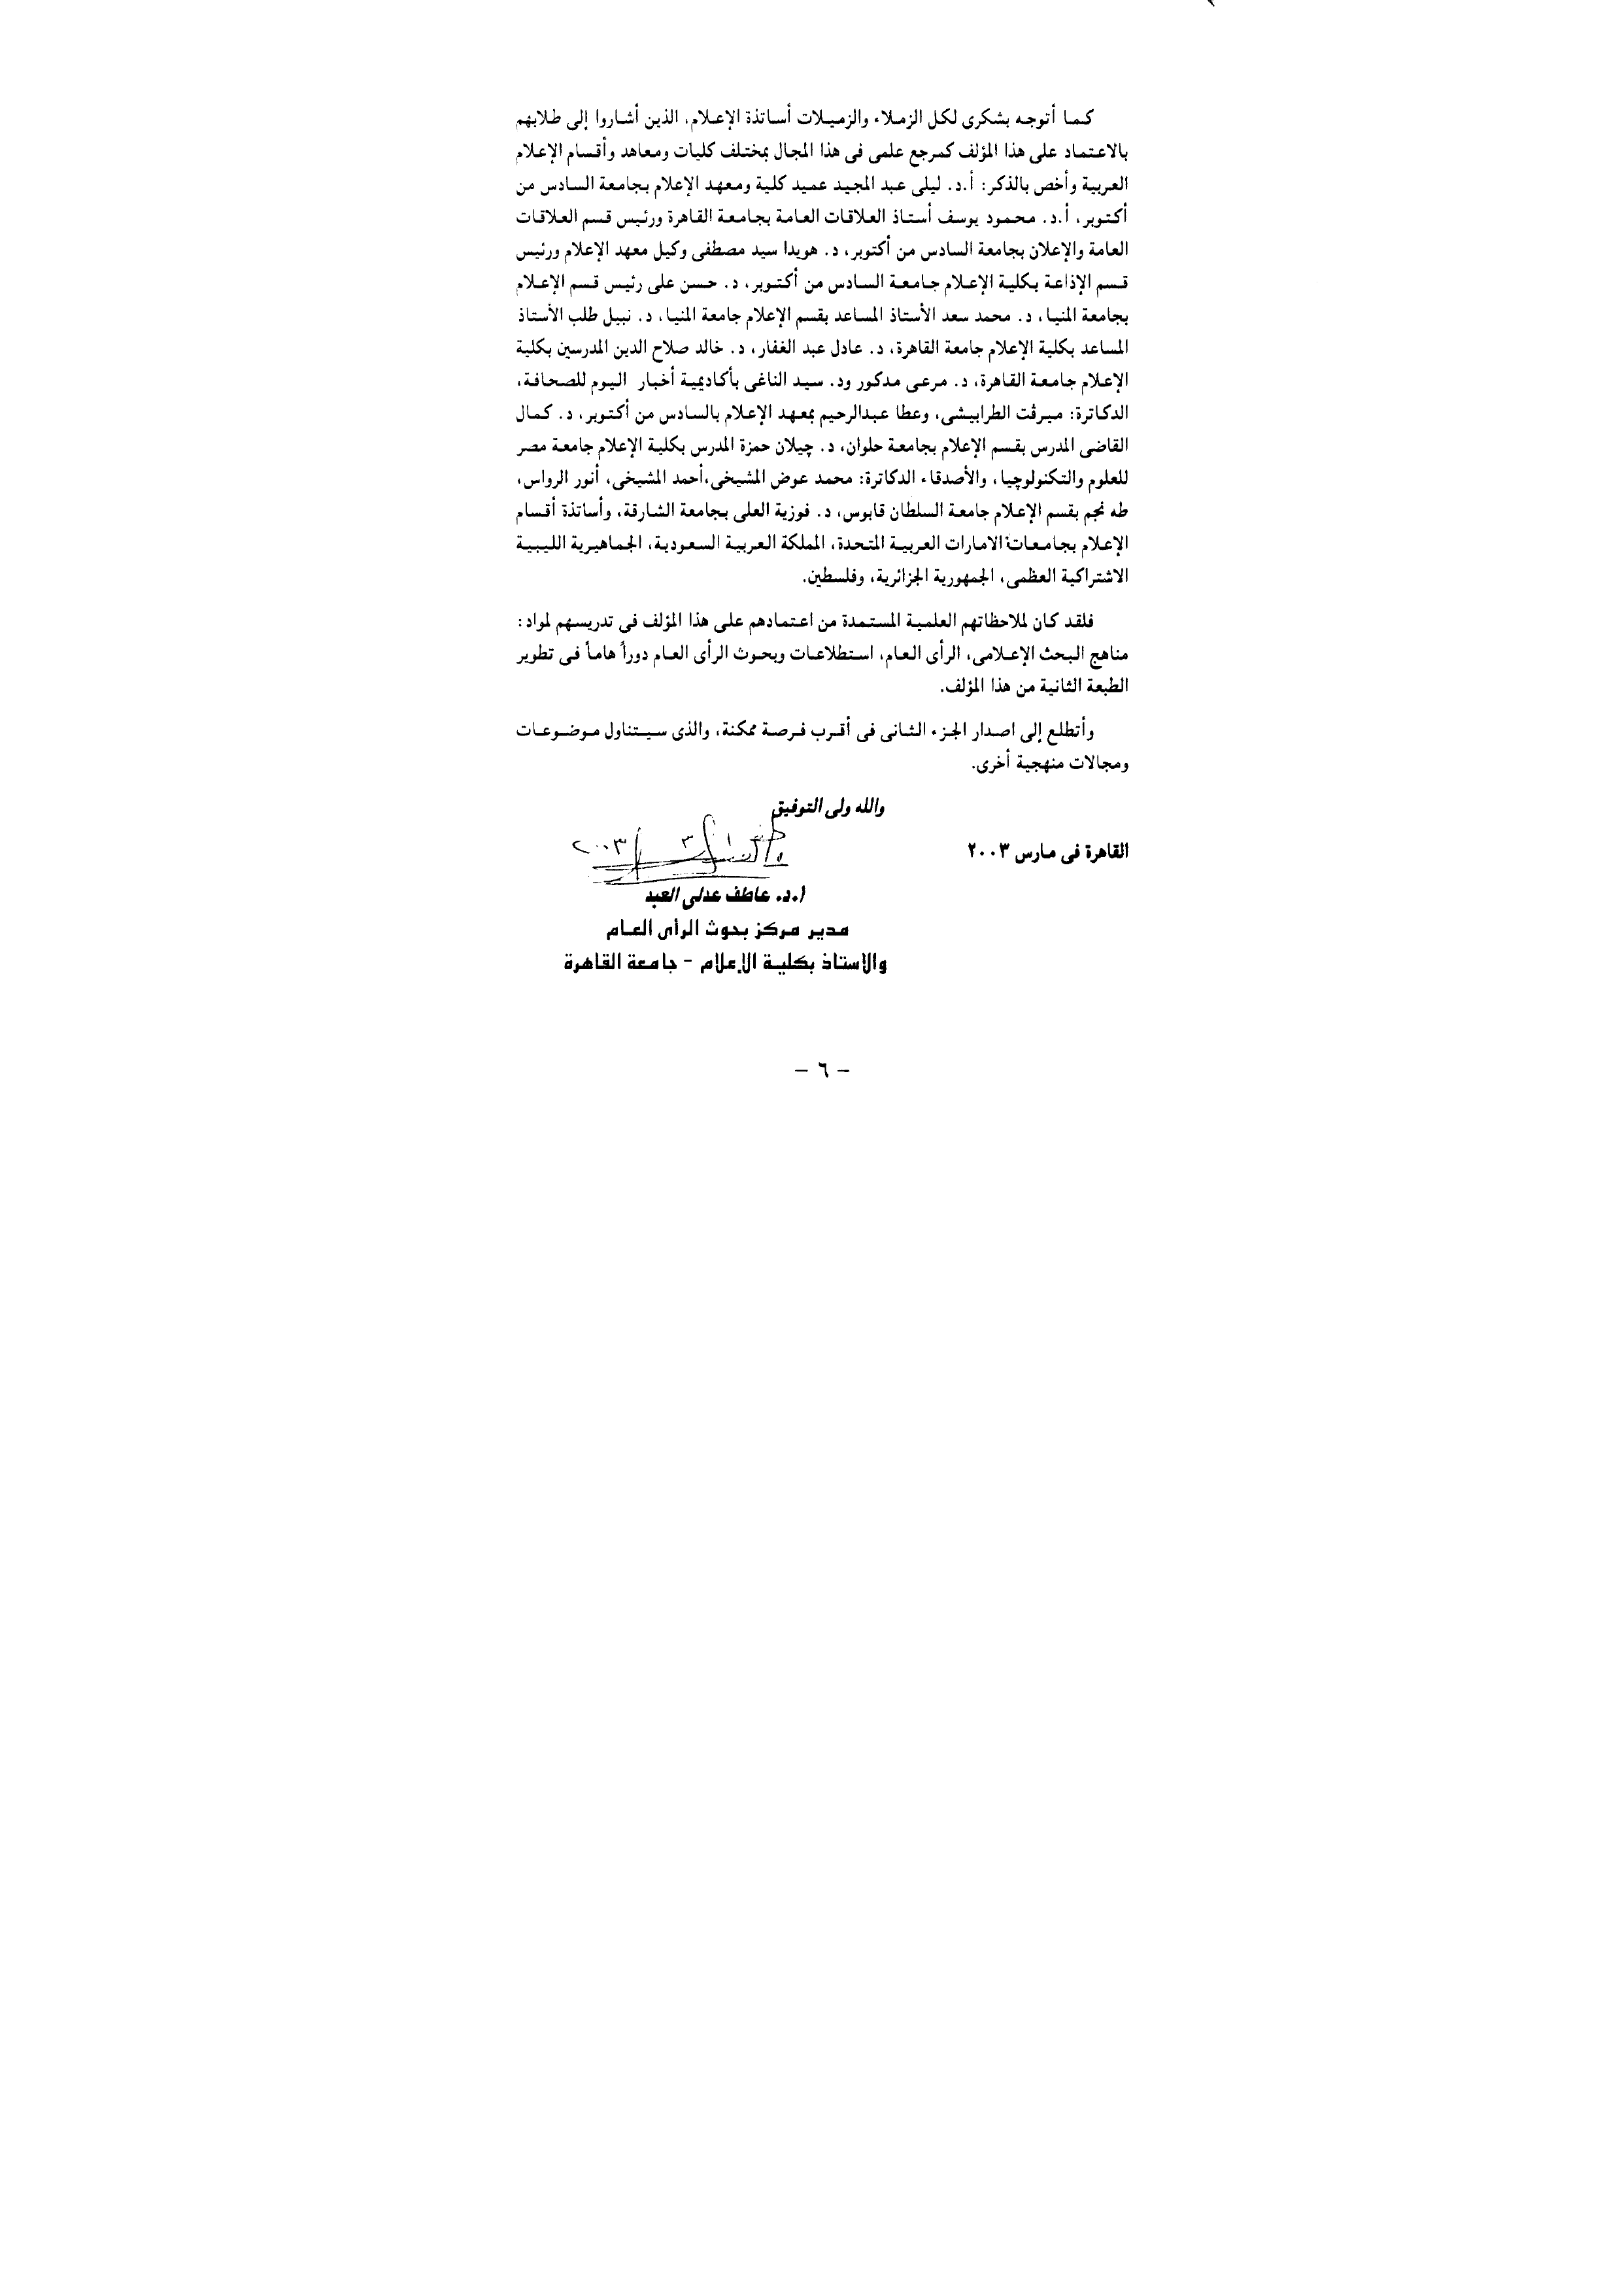 كما أتوجه بشكرى لكل الزملاء والزميلات أساتذة الإعلام، الذين أشاروا إلى طلابهم
بالاعتماد على هذا المؤلف كمرجع علمى فى هذا المجال بمختلف كليات ومعاهد وأقسام الإعلام
العربية وأخص بالذكر: أ.د. ليلى عبد المجيد عميد كلية ومعهد الإعلام بجامعة السادس من
أكتوبر، أ.د. محمود يوسف أستاذ العلاقات العامة بجامعة القاهرة ورئيس قسم العلاقات
العامة والإعلان بجامعة السادس من أكتوبر، د. هويدا سيد مصطفى وكيل معهد الإعلام ورئيس
قسم الإذاعة بكلية الإعلام جامعة السادس من أكتوبر، د. حسن على رئيس قسم الإعلام
بجامعة المنيا، د. محمد سعد الأستاذ المساعد بقسم الإعلام جامعة المنيا، د. نبيل طلب الأستاذ
المساعد بكلية الإعلام جامعة القاهرة، د. عادل عبد الغفار، د. خالد صلاح الدين المدرسين بكلية
الإعلام جامعة القاهرة، د. مرعى مدكور ود. سيد الناغى بأكاديمية أخبار اليوم للصحافة،
الدكاترة: ميرڤت الطرابيشى، وعطا عبدالرحيم بمعهد الإعلام بالسادس من أكتوبر، د. كمال
القاضى المدرس بقسم الإعلام بجامعة حلوان، د. چيلان حمزة المدرس بكلية الإعلام جامعة مصر
للعلوم والتكنولوچيا، والأصدقاء الدكاترة: محمد عوض المشيخى،أحمد المشيخى، أنور الرواس،
طه نجم بقسم الإعلام جامعة السلطان قابوس، د. فوزية العلى بجامعة الشارقة، وأساتذة أقسام
الإعلام بجامعات الامارات العربية المتحدة، المملكة العربية السعودية، الجماهيرية الليبية
الاشتراكية العظمى، الجمهورية الجزائرية، وفلسطين.
فلقد كان لملاحظاتهم العلمية المستمدة من اعتمادهم على هذا المؤلف فى تدريسهم لمواد:
مناهج البحث الإعلامى، الرأى العام، استطلاعات وبحوث الرأى العام دوراً هاماً فى تطوير
الطبعة الثانية من هذا المؤلف.
وأتطلع إلى اصدار الجزء الثانى فى أقرب فرصة ممكنة، والذى سيتناول موضوعات
ومجالات منهجية أخرى.
والله ولى التوفيق
القاهرة فى مارس ٢٠٠٣
٢٠٠٣
أ.د. عاطف عدلى العبد
مدير مركز بحوث الرأى العام
والاستاذ بكلية الإعلام - جامعة القاهرة
- ٦ -